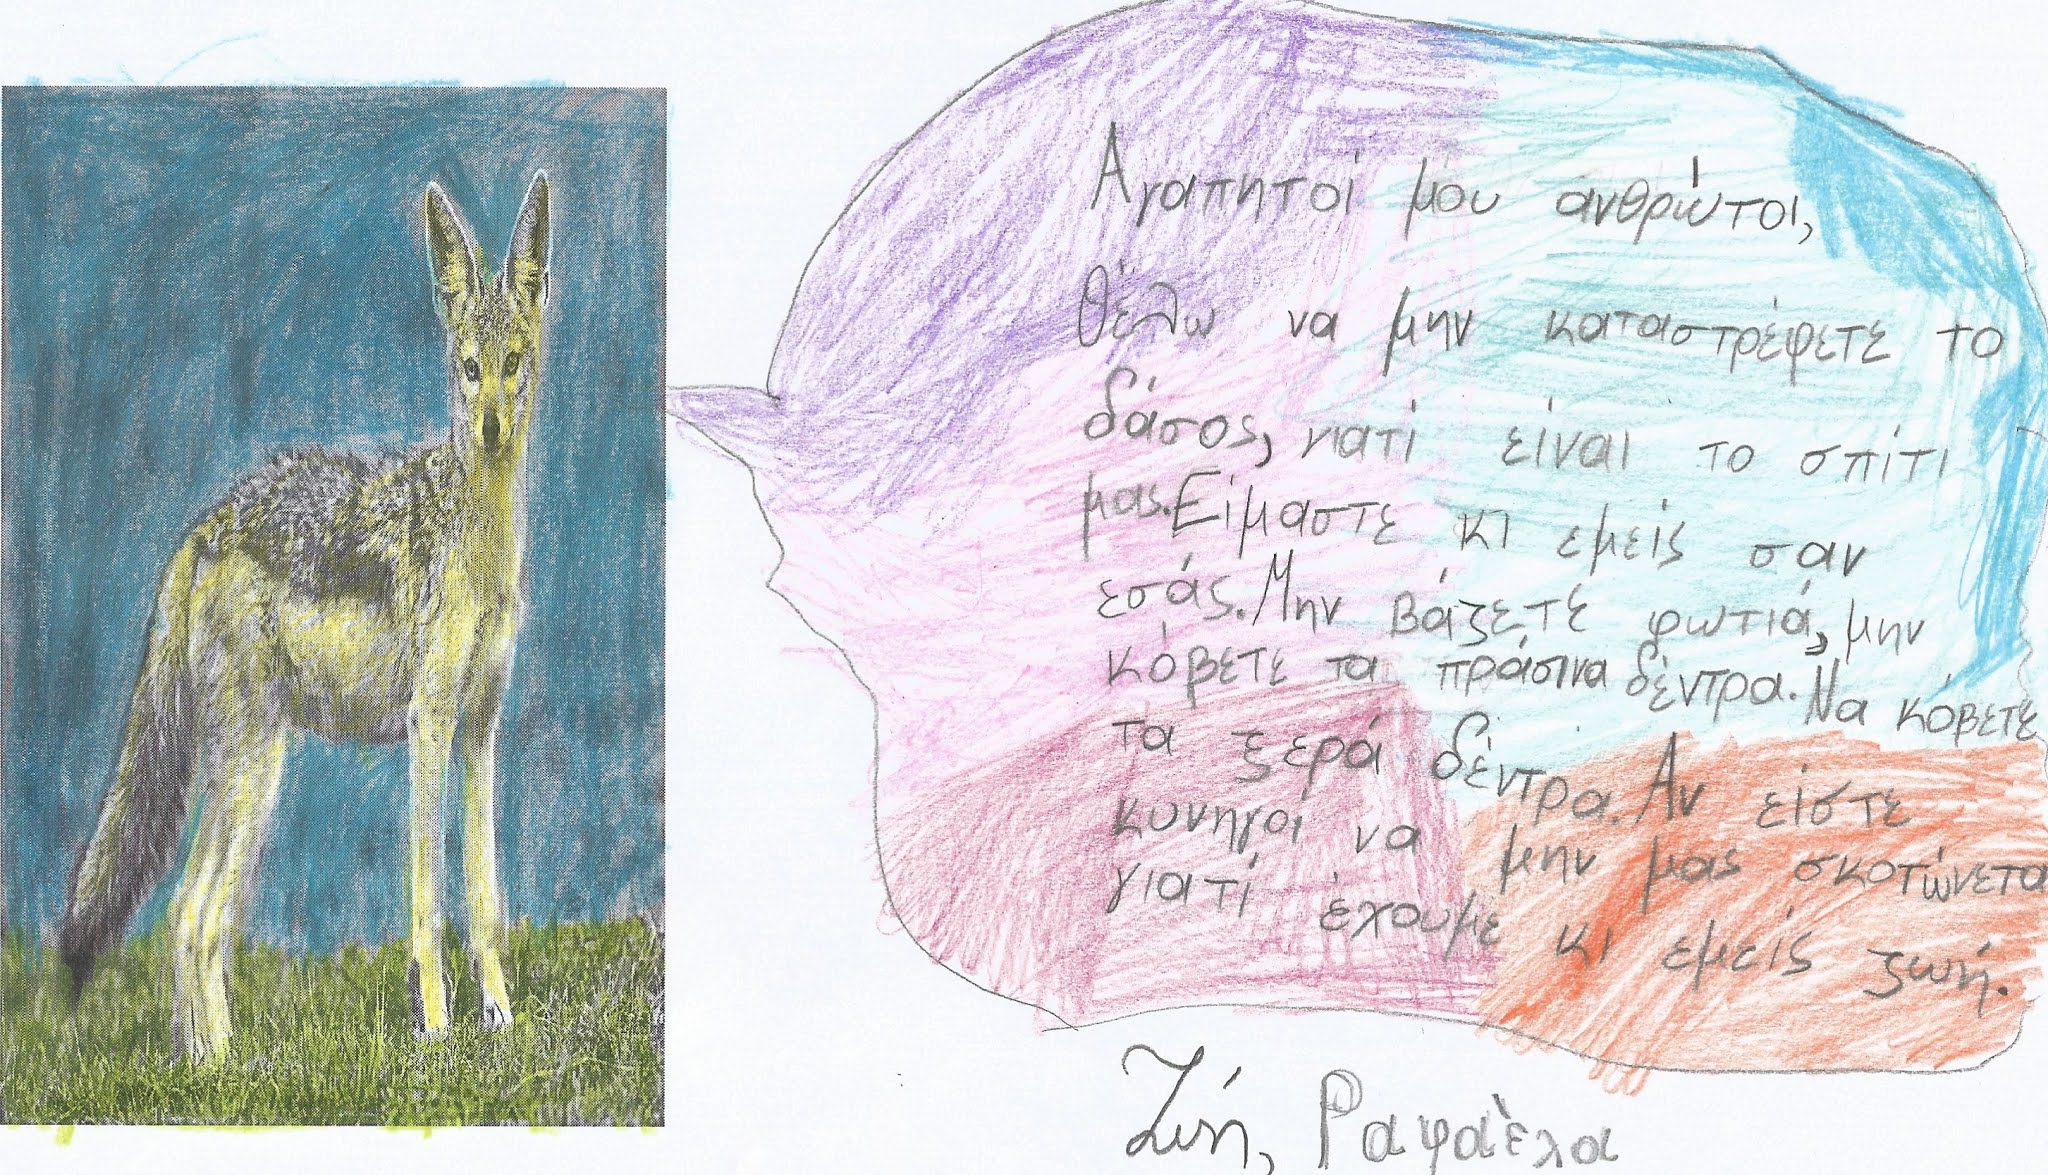 Αγαπητοί μου ανθρώποι,
θέλω να μην καταστρέφετε το
δάσος, γιατί είναι το σπίτι
μας. Είμαστε κι εμείς σαν
εσάς. Μην βάζετε φωτιά, μην
κόβετε τα πράσινα δέντρα. Να κόβετε
τα ξερά δέντρα. Αν είστε
κυνηγοί να μην μας σκοτώνετα
γιατί έχουμε κι εμείς ζωή.
Ζωή, Ραφαέλα